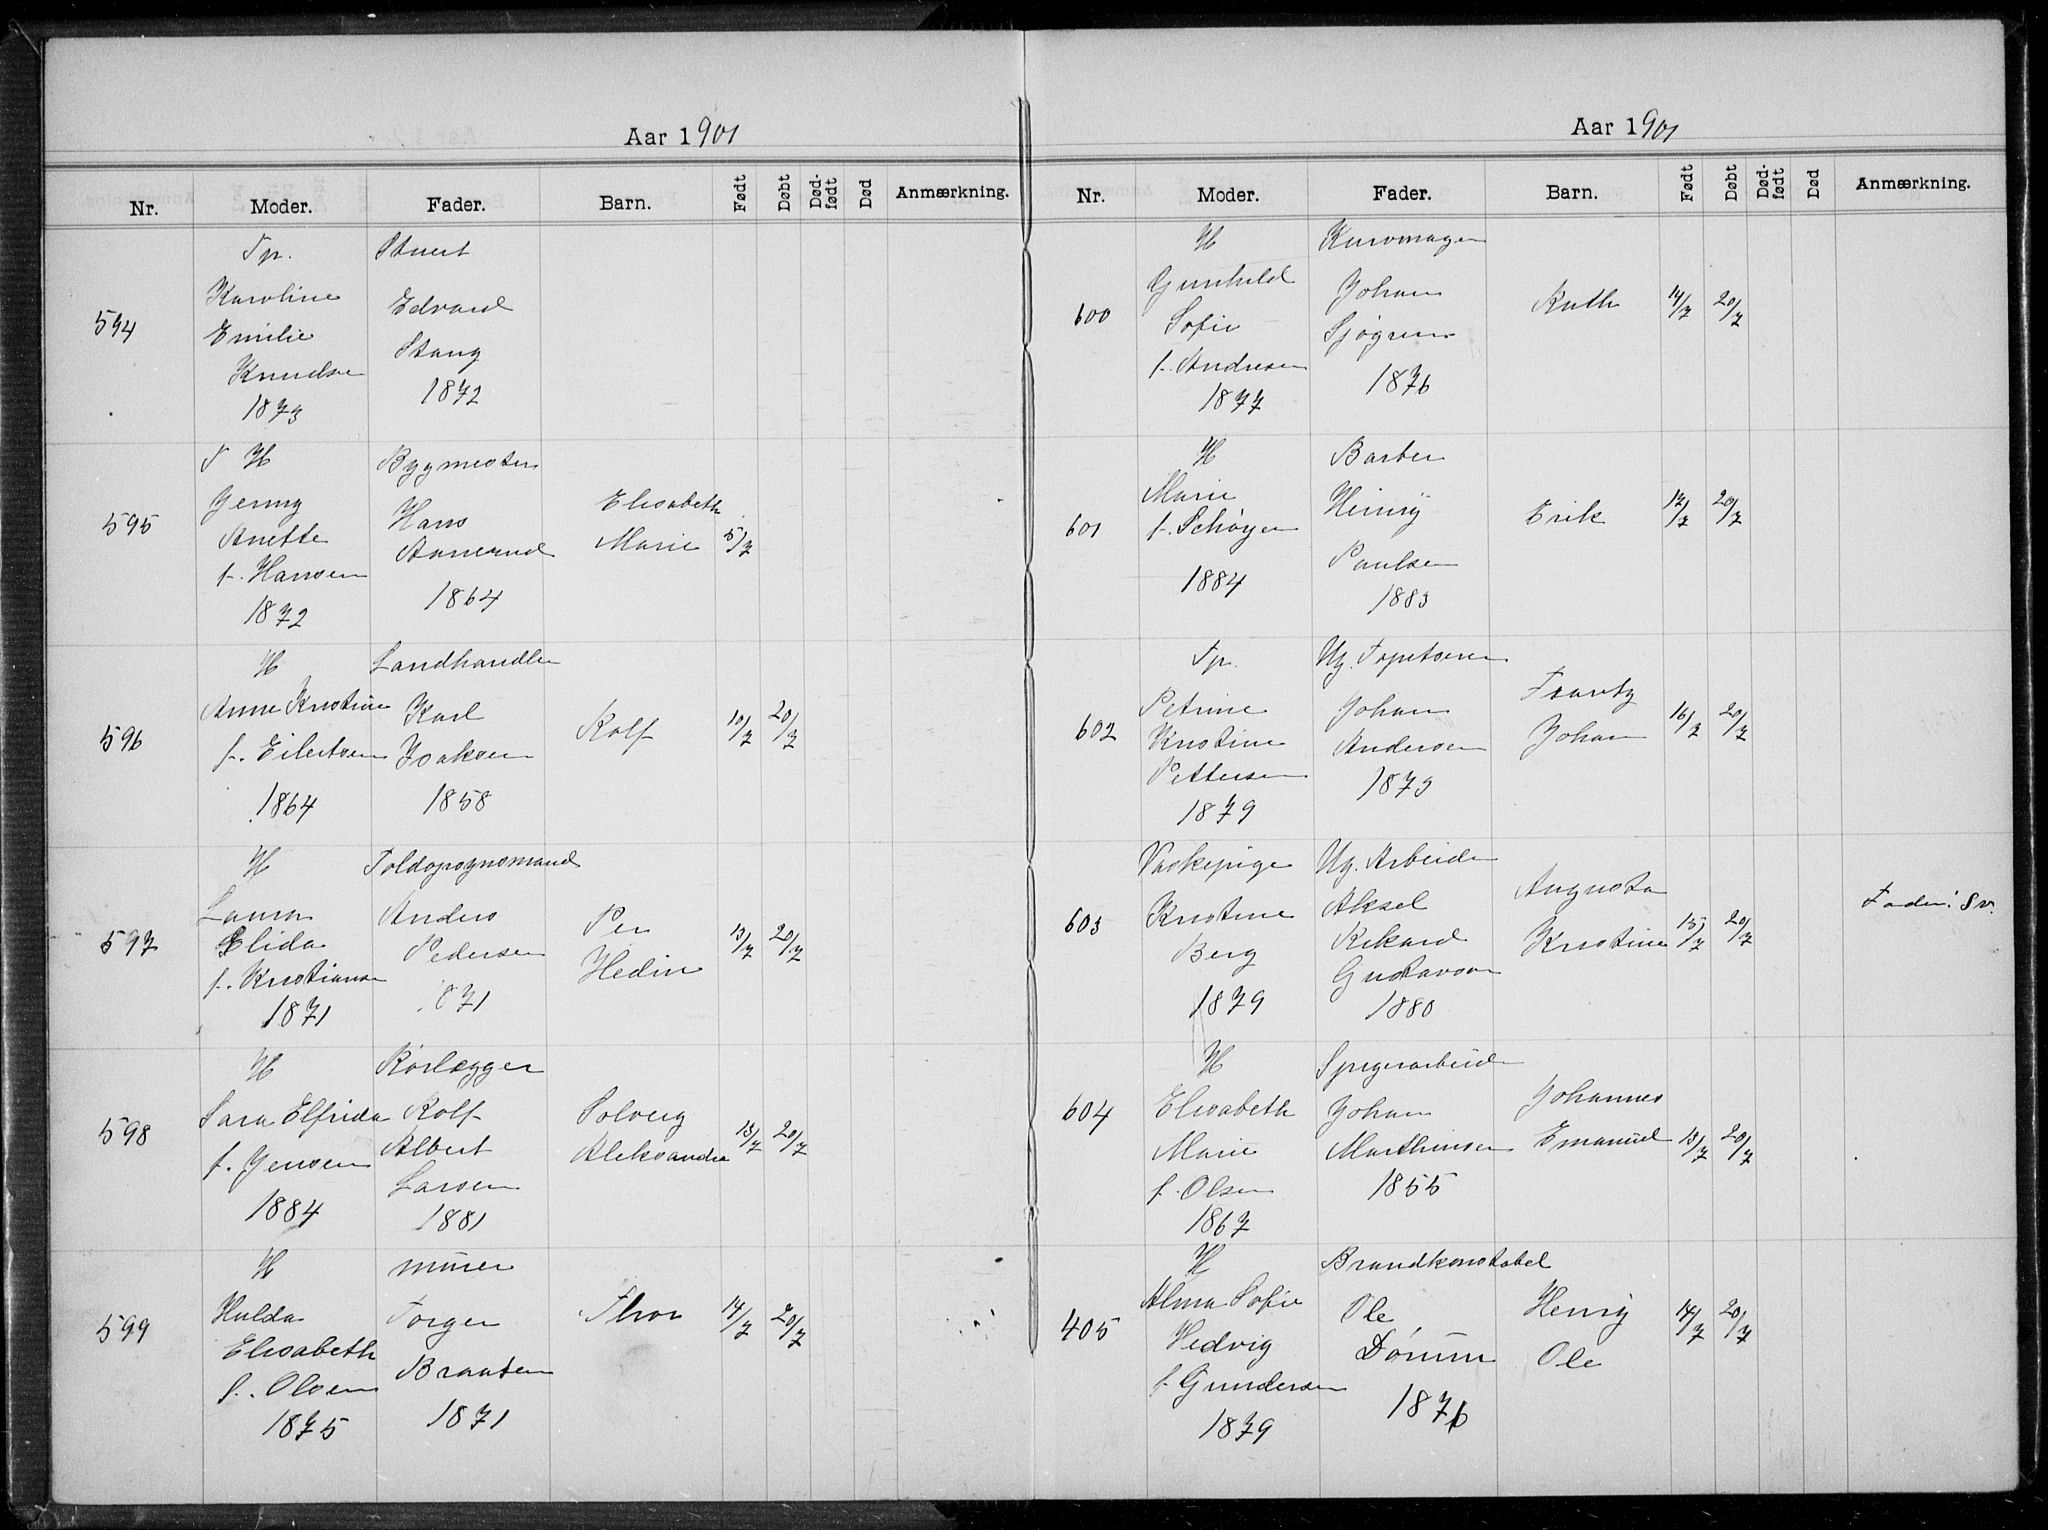 Aar 1901
Nr. Moder. Fader. Barn. Født Døbt Død-født Død Anmærkning.
594
Tp.
Karoline
Emilie
Knudsen
1873
Stuert
Edvard
Stang
1872
595
T H
Jenny
Anette
f. Hansen
1872
Bygmester
Hans
Aamerud
1864
Elisabeth
Marie
5/7
596
H
Anne Kristine
f. Eilertsen
1864
Landhandler
Karl
Isaksen
1858
Rolf
10/7
20/7
597
H
Laura
Elida
f. Kristiansen
1871
Toldopsynsmand
Anders
Pedersen
1871
Per
Hedin
13/7
20/7
598
H
Sara Elfrida
f. Jensen
1884
Rørlægger
Rolf
Albert
Larsen
1881
Solveig
Aleksandra
13/7
20/7
599
H
Hulda
Elisabeth
f. Olsen
1875
murer
Torger
Braaten
1871
Thor
14/7
20/7
Aar 1901
Nr. Moder. Fader. Barn. Født Døbt Død-født Død Anmærkning.
600
H
Gunhild
Sofie
f. Andresen
1877
Kurvmager
Johan
Sjøgren
1876
Ruth
14/7
20/7
601
H
Marie
f. Schøyen
1884
Barber
Henry
Paulsen
1883
Erik
17/7
20/7
602
Tp.
Petrine
Kristine
Pettersen
1879
Ug. Tapetserer
Johan
Andersen
1873
Frantz
Johan
16/7
20/7
603
Vaskepige
Kristine
Berg
1879
Ug. Arbeider
Aksel
Rikard
Gustavson
1880
Augusta
Kristine
15/7
20/7
Fader: Sv.
604
H
Elisabeth
Marie
f. Olsen
1867
Spigerarbeider
Johan
Marthinsen
1855
Johannes
Emanuel
13/7
20/7
405
H
Alma Sofie
Hedvig
f. Gundersen
1879
Brandkonstabel
Ole
Dørum
1876
Henry
Ole
14/7
20/7